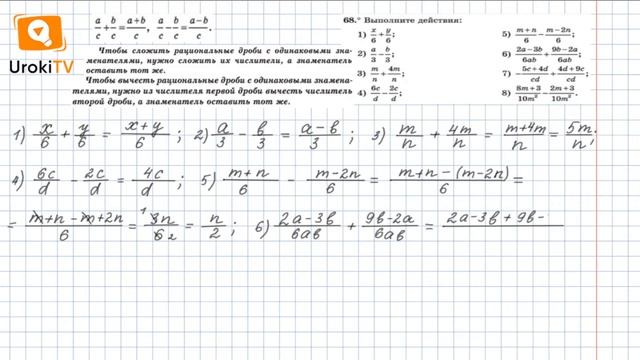 a/c + b/c = a+b/c, a/c - b/c = a-b/c.
Чтобы сложить рациональные дроби с одинаковыми зна-
менателями, нужно сложить их числители, а знаменатель
оставить тот же.
Чтобы вычесть рациональные дроби с одинаковыми знамена-
телями, нужно из числителя первой дроби вычесть числитель
второй дроби, а знаменатель оставить тот же.
UrokiTV
68.° Выполните действия:
1) x/6 + y/6;
2) a/3 - b/3;
3) m/n + 4m/n;
4) 6c/d - 2c/d;
5) m+n/6 - m-2n/6;
6) 2a-3b/6ab + 9b-2a/6ab;
7) -5c+4d/cd + 4d+9c/cd;
8) 8m+3/10m² - 2m+3/10m².
1) x/6 + y/6 = x+y/6 ; 2) a/3 - b/3 = a-b/3 ; 3) m/n + 4m/n = m+4m/n = 5m/n;
4) 6c/d - 2c/d = 4c/d ; 5) m+n/6 - m-2n/6 = m+n-(m-2n)/6 =
= m+n-m+2n/6 = 1 3n/6 2 = n/2 ; 6) 2a-3b/6ab + 9b-2a/6ab = 2a-3b+9b-